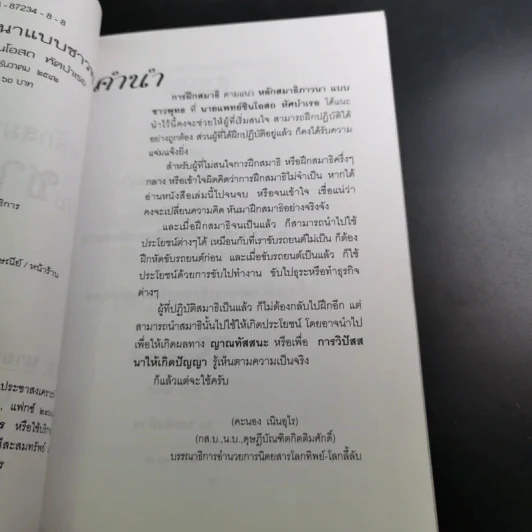 - 87234 - 8 - 8
นาแบบชาวพุ
นโอสถ หัศบำเรอ
ธันวาคม ๒๕๔๒
๖๐ บาท
ธิการ
ษณีย์ / หน้าร้าน
ประชาสงเคราะห์
แฟกซ์
หรือใช้บริก
ธีสะสมทรัพย์
ร
คำนำ
การฝึกสมาธิ ตามแนว หลักสมาธิภาวนา แบบ
ชาวพุทธ ที่ นายแพทย์ชินโอสถ หัศบำเรอ ได้แนะ
นำไว้นี้คงจะช่วยให้ผู้ที่เริ่มสนใจ สามารถฝึกปฏิบัติได้
อย่างถูกต้อง ส่วนผู้ที่ได้ฝึกปฏิบัติอยู่แล้ว ก็คงได้รับความ
แจ่มแจ้งยิ่ง
สำหรับผู้ที่ไม่สนใจการฝึกสมาธิ หรือฝึกสมาธิครึ่งๆ
กลาง หรือเข้าใจผิดคิดว่าการฝึกสมาธิไม่จำเป็น หากได้
อ่านหนังสือเล่มนี้ไปจนจบ หรือจนเข้าใจ เชื่อแน่ว่า
คงจะเปลี่ยนความคิด หันมาฝึกสมาธิอย่างจริงจัง
และเมื่อฝึกสมาธิจนเป็นแล้ว ก็สามารถนำไปใช้
ประโยชน์ต่างๆได้ เหมือนกับที่เราขับรถยนต์ไม่เป็น ก็ต้อง
ฝึกหัดขับรถยนต์ก่อน และเมื่อขับรถยนต์เป็นแล้ว ก็ใช้
ประโยชน์ด้วยการขับไปทำงาน ขับไปธุระหรือทำธุรกิจ
ต่างๆ
ผู้ที่ปฏิบัติสมาธิเป็นแล้ว ก็ไม่ต้องกลับไปฝึกอีก แต่
สามารถนำสมาธินั้นไปใช้ให้เกิดประโยชน์ โดยอาจนำไป
เพื่อให้เกิดผลทาง ญาณทัสสนะ หรือเพื่อ การวิปัสส
นาให้เกิดปัญญา รู้เห็นตามความเป็นจริง
ก็แล้วแต่จะใช้ครับ
(คะนอง เนินอุไร)
(กส.บ.,น.บ.,ดุษฎีบัณฑิตกิตติมศักดิ์)
บรรณาธิการอำนวยการนิตยสารโลกทิพย์-โลกลี้ลับ